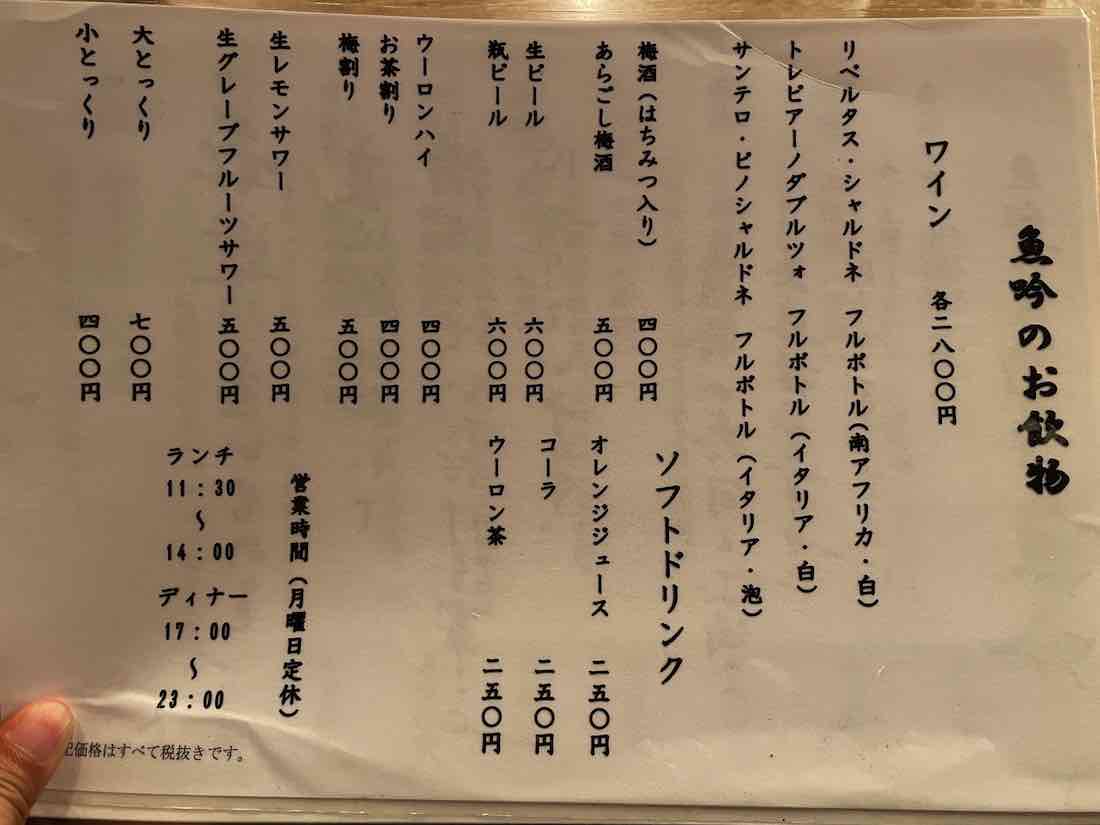 魚吟のお飲物
ワイン 各二八〇〇円
リベルタス・シャルドネ フルボトル(南アフリカ・白)
トレビアーノダブルツォ フルボトル(イタリア・白)
サンテロ・ピノシャルドネ フルボトル(イタリア・泡)
梅酒(はちみつ入り) 四〇〇円
あらごし梅酒 五〇〇円
生ビール 六〇〇円
瓶ビール 六〇〇円
ウーロンハイ 四〇〇円
お茶割り 四〇〇円
梅割り 五〇〇円
生レモンサワー 五〇〇円
生グレープフルーツサワー 五〇〇円
大とっくり 七〇〇円
小とっくり 四〇〇円
ソフトドリンク
オレンジジュース 二五〇円
コーラ 二五〇円
ウーロン茶 二五〇円
営業時間(月曜日定休)
ランチ
11:30
～
14:00
ディナー
17:00
～
23:00
記価格はすべて税抜きです。